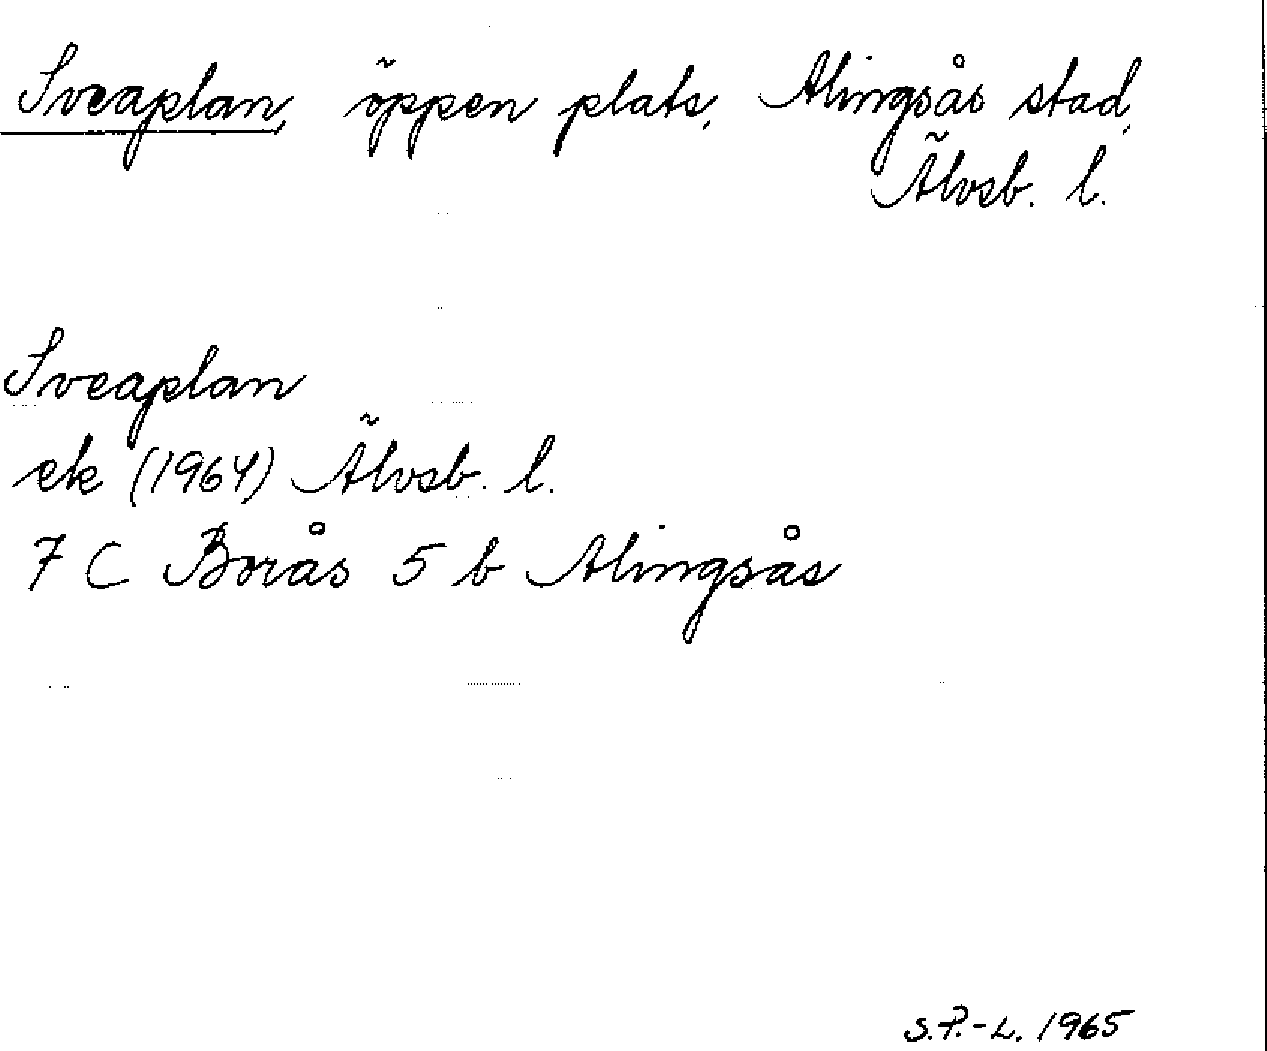 Sveaplan, öppen plats, Alingsås stad,
Älvsb. l.
Sveaplan
ek (1964) Älvsb. l.
7 C Borås 5 b Alingsås
S.P.-L. 1965